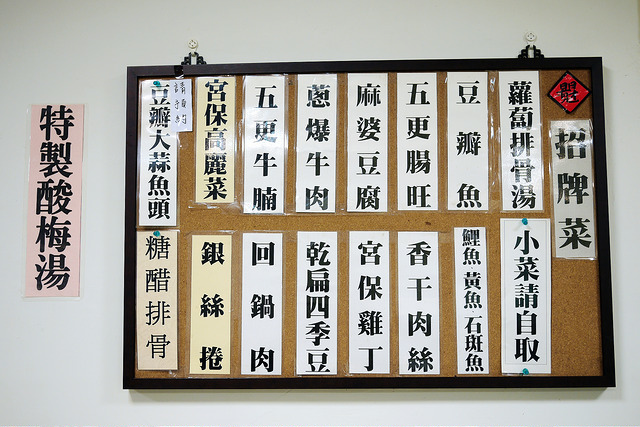 招牌菜
蘿蔔排骨湯
豆瓣魚
五更腸旺
麻婆豆腐
蔥爆牛肉
五更牛腩
宮保高麗菜
豆瓣大蒜魚頭
小菜請自取
鯉魚 黃魚 石斑魚
香干肉絲
宮保雞丁
乾扁四季豆
回鍋肉
銀絲捲
糖醋排骨
特製酸梅湯